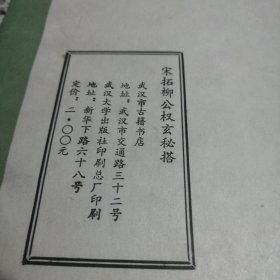 宋拓柳公权玄秘搭
武汉市古籍书店
地址：武汉市交通路三十二号
武汉大学出版社印刷总厂印刷
地址：新华下路六十八号
定价：二·〇〇元